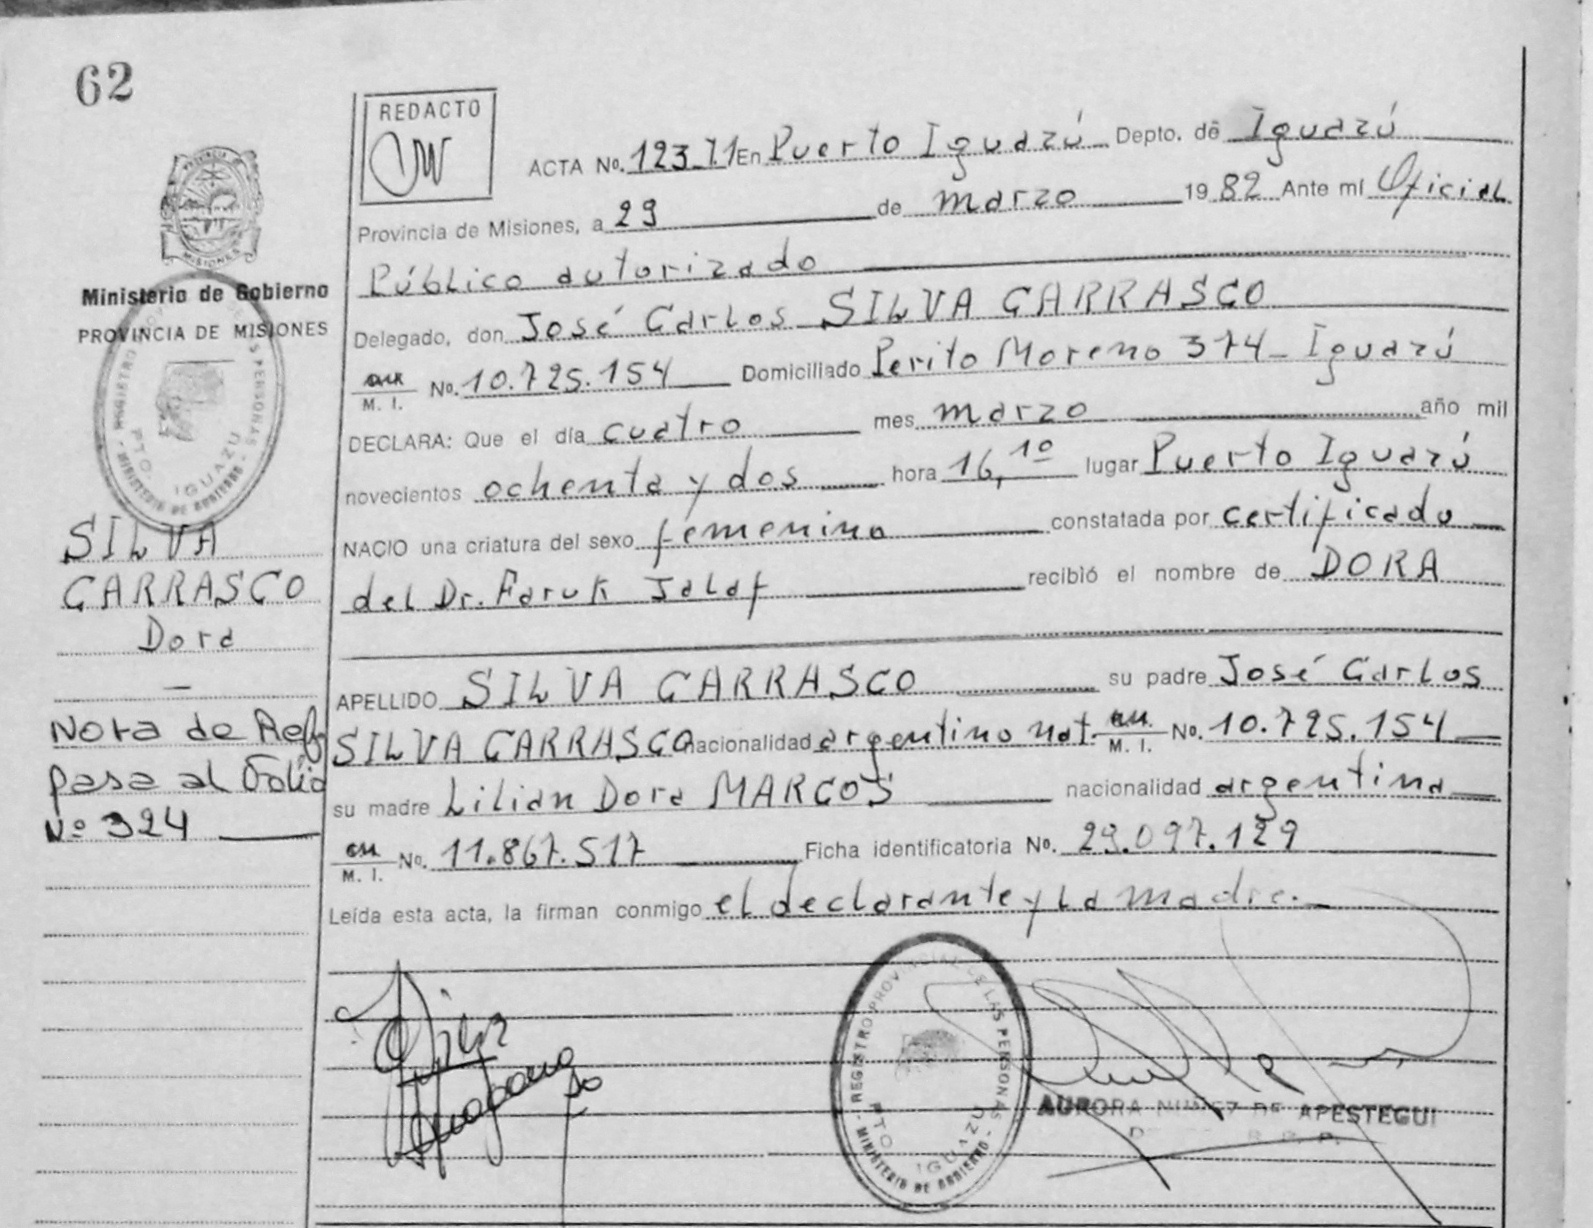 62
REDACTO
ACTA No. 123 T.1 En Puerto Iguazú Depto. de Iguazú
Provincia de Misiones, a 29 de marzo 1982 Ante mi Oficial
Público autorizado
Delegado, don José Carlos SILVA CARRASCO
M. I. No. 10.725.154 Domiciliado Perito Moreno 374 - Iguazú
DECLARA: Que el día cuatro mes marzo año mil
novecientos ochenta y dos hora 16,10 lugar Puerto Iguazú
NACIO una criatura del sexo femenino constatada por certificado
del Dr. Faruk Jalaf recibió el nombre de DORA
APELLIDO SILVA CARRASCO su padre José Carlos
SILVA CARRASCO nacionalidad argentino nat. M. I. No. 10.725.154
su madre Lilian Dora MARCOS nacionalidad argentina
M. I. No. 11.867.517 Ficha identificatoria No. 29.097.129
Leída esta acta, la firman conmigo el declarante y la madre.
PROVINCIA DE MISIONES
Ministerio de Gobierno
PROVINCIA DE MISIONES
REGISTRO PROVINCIAL DE LAS PERSONAS
PTO. IGUAZU
MINISTERIO DE GOBIERNO
SILVA
CARRASCO
Dora
Nota de Ref
pasa al Folio
Nº 324
REGISTRO PROVINCIAL DE LAS PERSONAS
PTO. IGUAZU
MINISTERIO DE GOBIERNO
AURORA NUÑEZ DE APESTEGUI